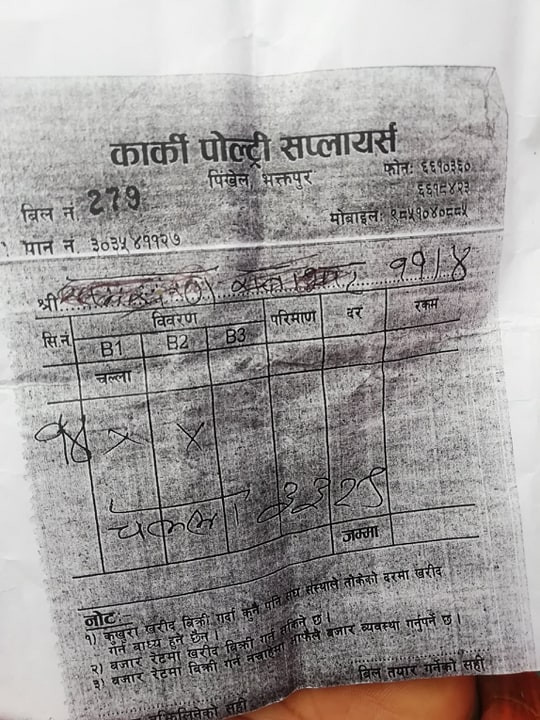 कार्की पोल्ट्री सप्लायर्स
पिंखेल, भक्तपुर
फोन: ६६१०३६०
६६१८४२३
बिल नं. 279
मोबाइल: ९८५१०४०८८५
प्यान नं. ३०३५४११२७
श्री ११।४
सि.नं. विवरण परिमाण दर रकम
B1 B2 B3
चल्ला
१४ × ×
जम्मा
नोट:
१) कुखुरा खरीद बिक्री गर्दा कुनै पनि संघ संस्थाले तोकेको दरमा खरीद
गर्न बाध्य हुने छैन ।
२) बजार रेटमा खरीद बिक्री गर्न सकिने छ ।
३) बजार रेटमा बिक्री गर्न नचाहेमा आफैले बजार व्यवस्था गर्नुपर्ने छ ।
बिल तयार गर्नेको सही
बुझिलिनेको सही